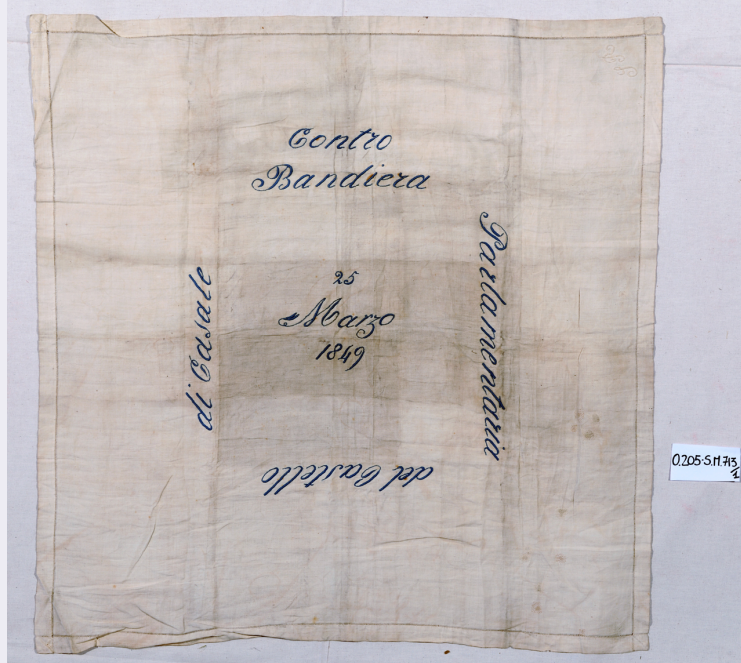 Contro
Bandiera
Parlamentaria
del Castello
di Casale
25
Marzo
1849
0.205·S.M.713/1